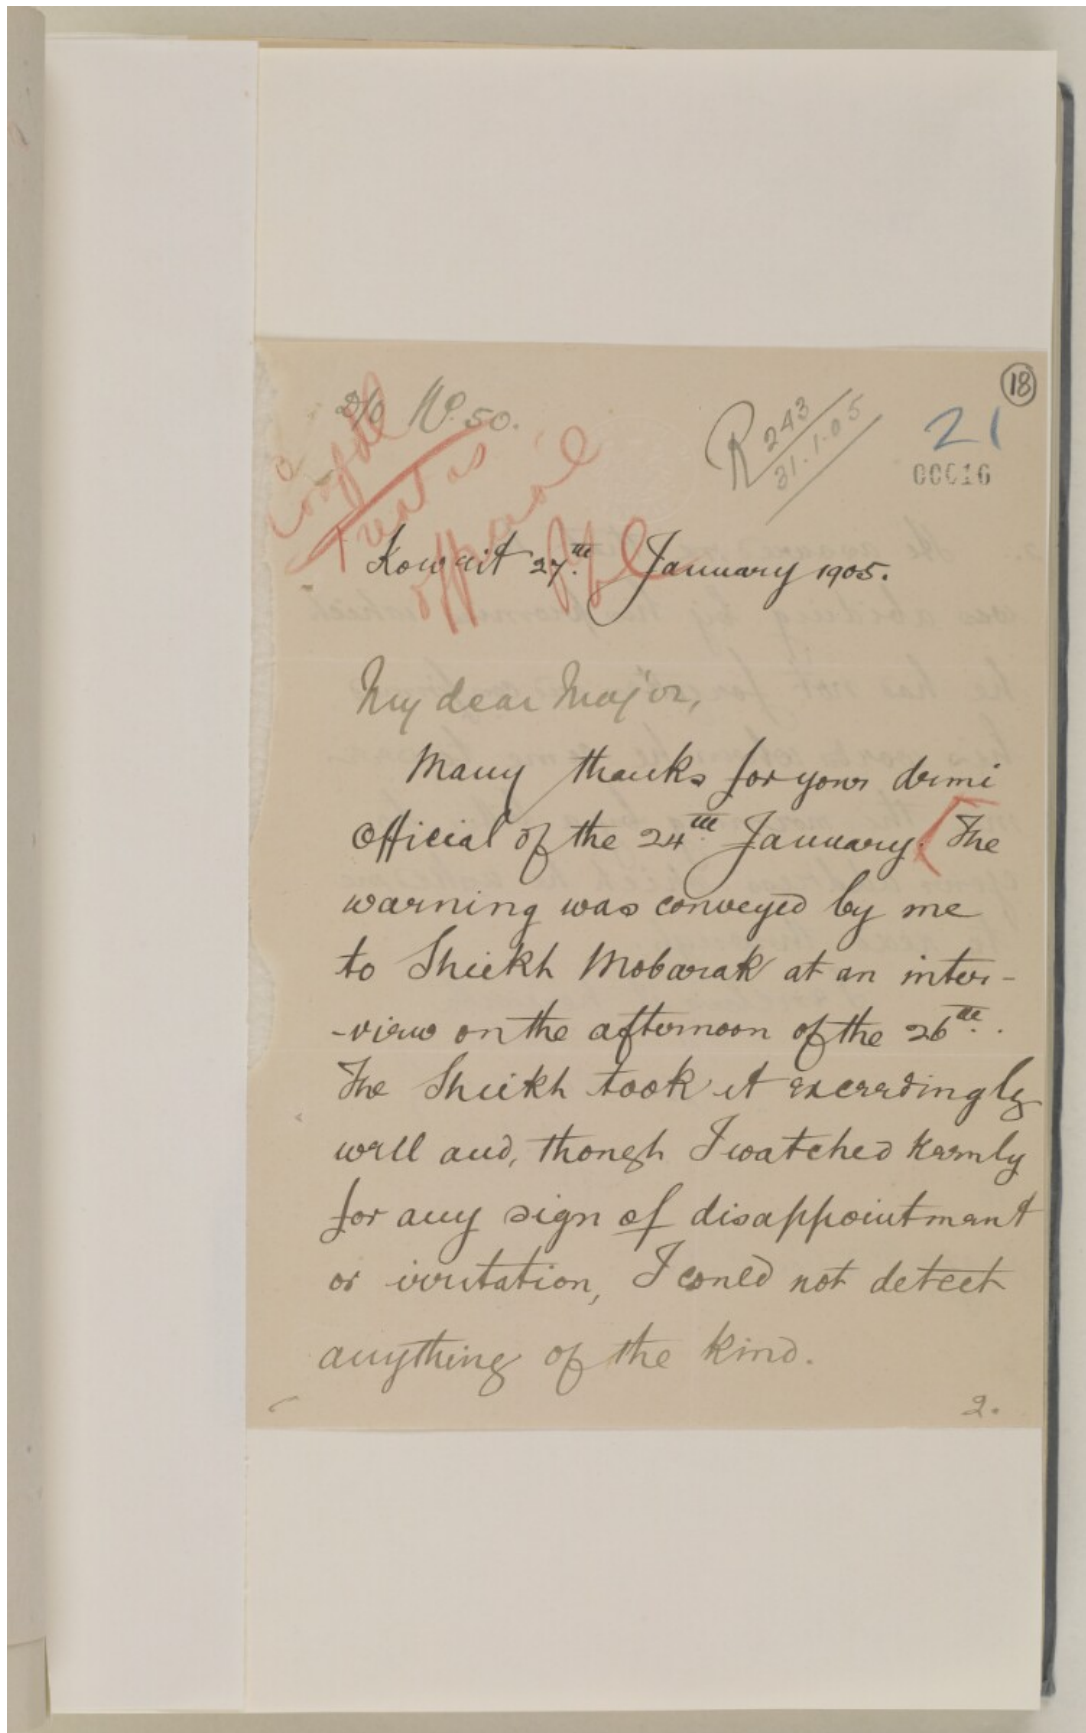 18
D/O No. 50.
R 243
31.1.05
21
00016
Confdl
Treat as
official
Kowait 27th. January 1905.
My dear Major,
Many thanks for your demi
official of the 24th January. The
warning was conveyed by me
to Sheikh Mobarak at an inter-
-view on the afternoon of the 26th.
The Sheikh took it exceedingly
well and, though I watched keenly
for any sign of disappointment
or irritation, I could not detect
anything of the kind.
2.